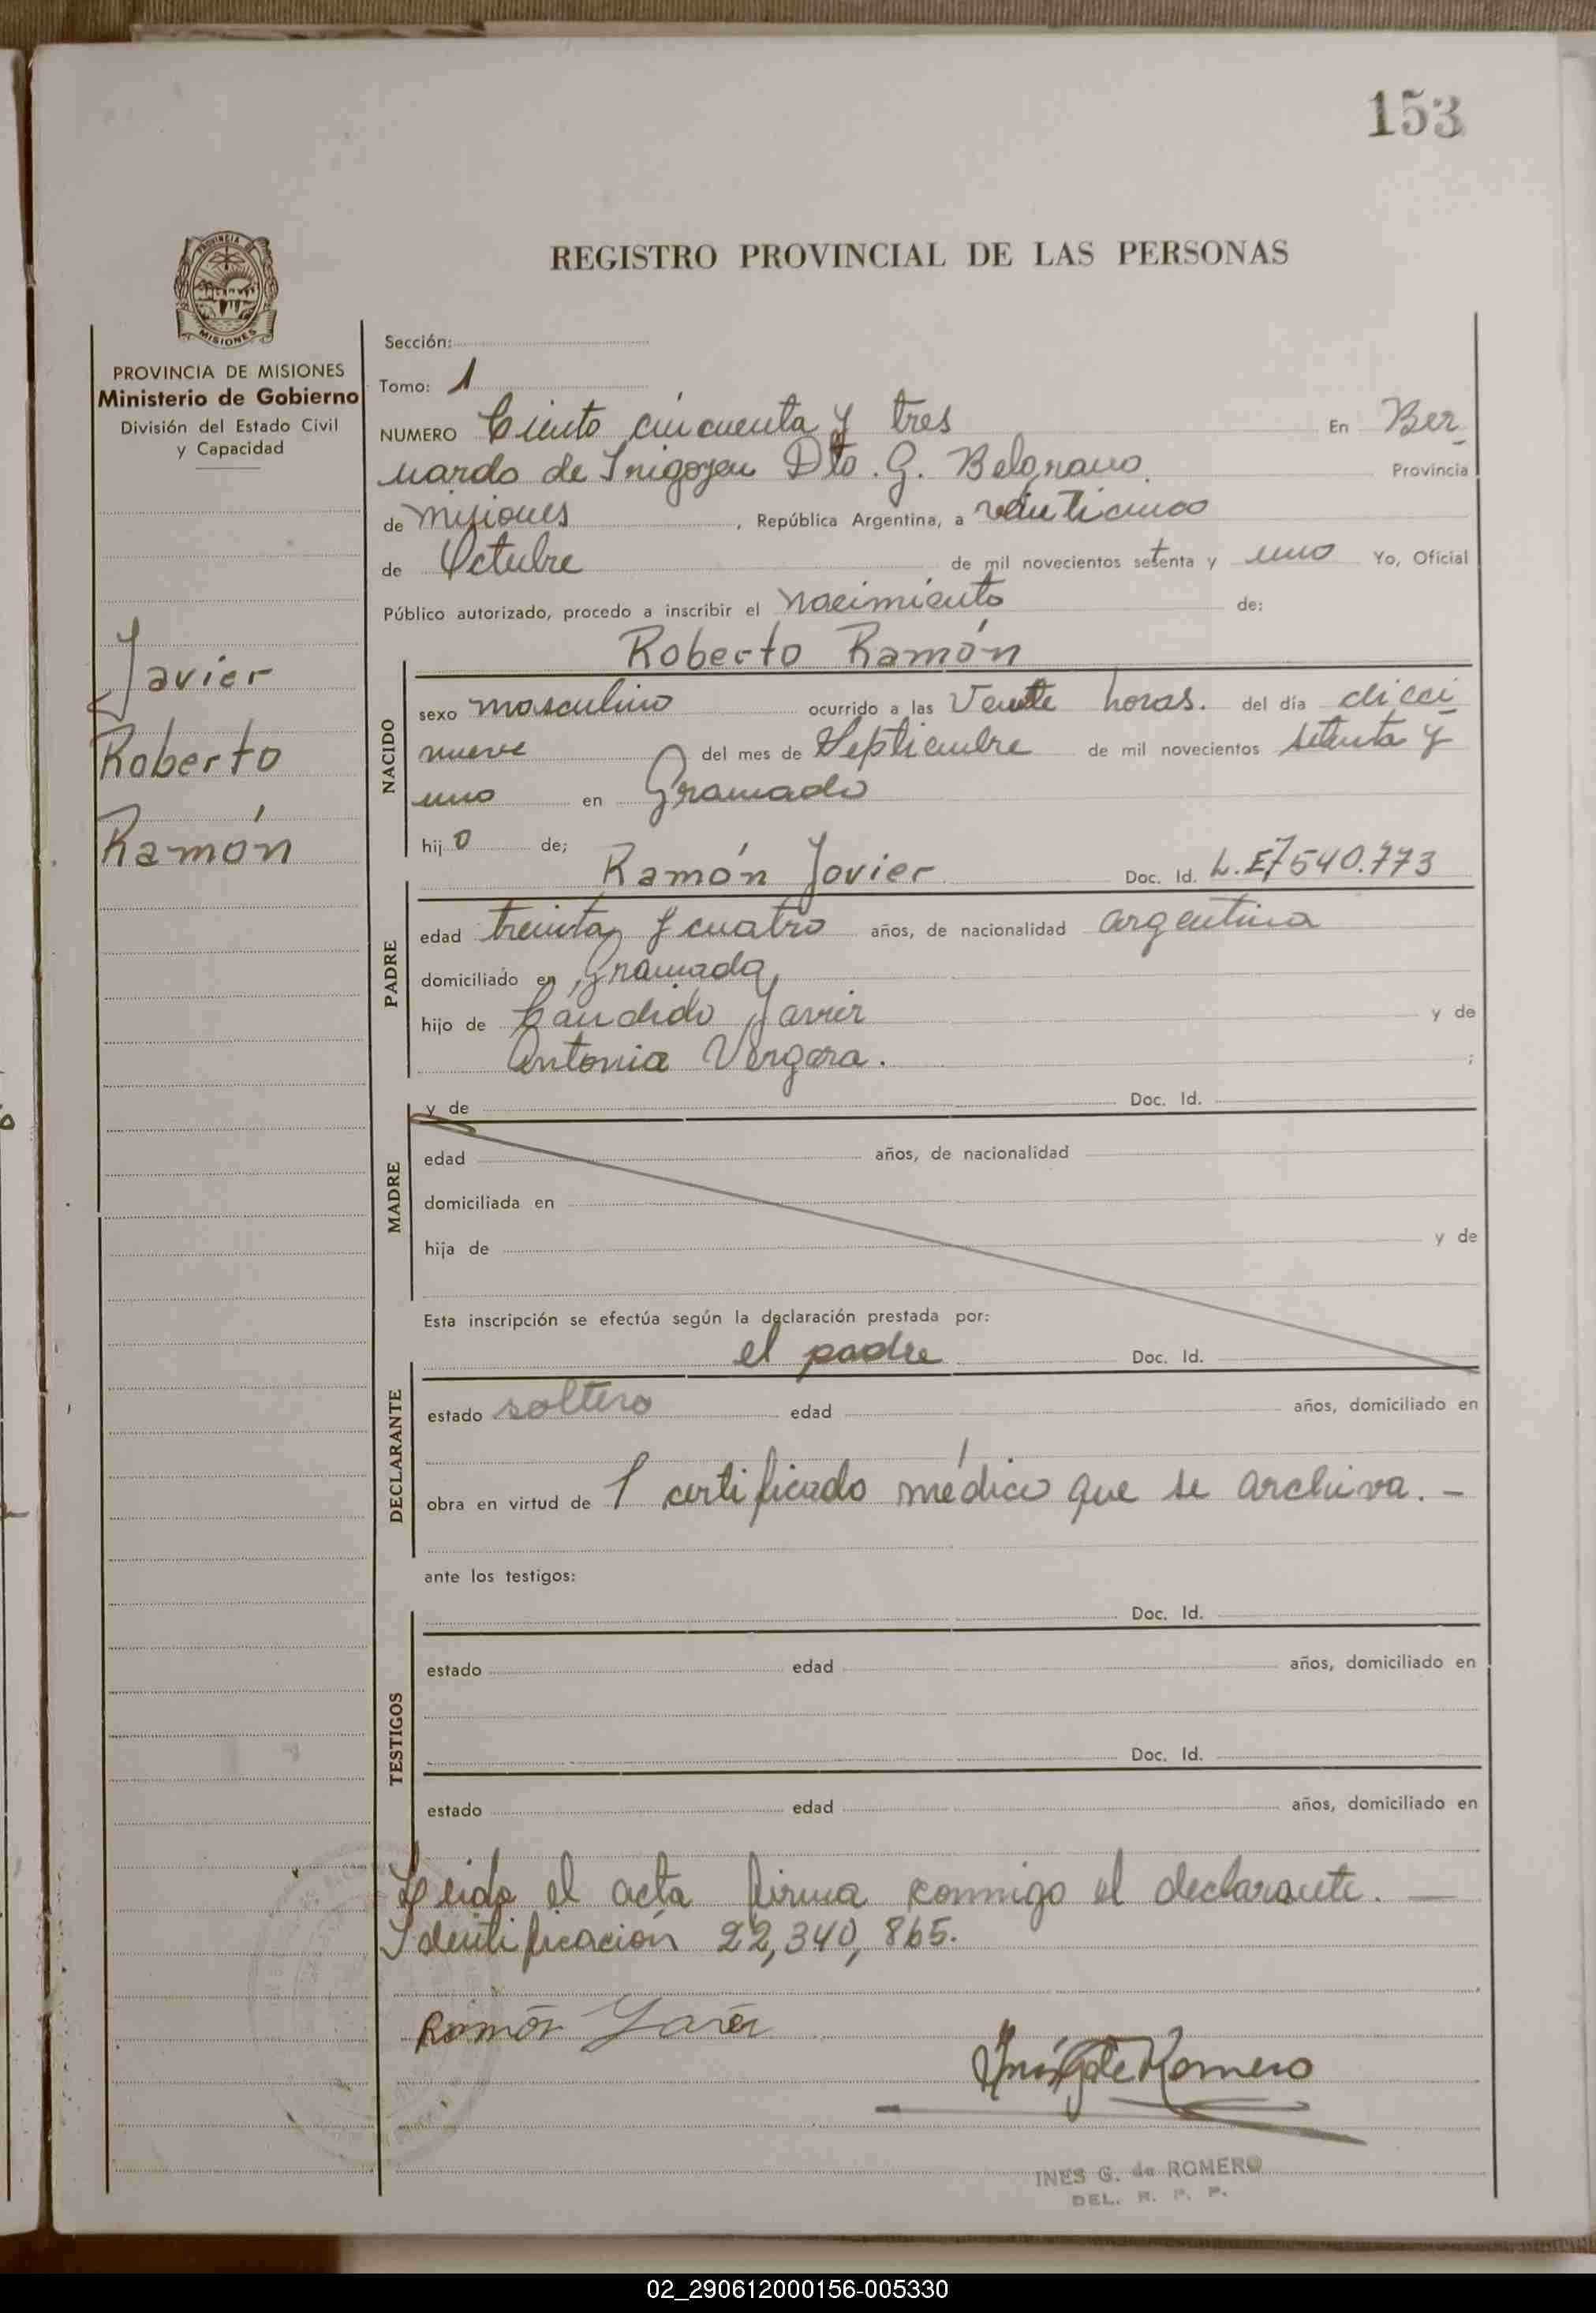 153
REGISTRO PROVINCIAL DE LAS PERSONAS
PROVINCIA DE
MISIONES
PROVINCIA DE MISIONES
Ministerio de Gobierno
División del Estado Civil
y Capacidad
Javier
Roberto
Ramón
Sección:
Tomo: 1
NUMERO Ciento cincuenta y tres En Ber
nardo de Irigoyen Dto. G. Belgrano Provincia
de Misiones, República Argentina, a veinticinco
de Octubre de mil novecientos setenta y uno Yo, Oficial
Público autorizado, procedo a inscribir el nacimiento de:
Roberto Ramón
NACIDO
sexo masculino ocurrido a las Veinte horas. del día dieci
nueve del mes de Septiembre de mil novecientos setenta y
uno en Gramado
hijo de;
Ramón Javier Doc. Id. L.E 7540.773
PADRE
edad treinta y cuatro años, de nacionalidad argentina
domiciliado en Gramado
hijo de Candido Javier y de
Antonia Vergara. ;
MADRE
y de Doc. Id.
edad años, de nacionalidad
domiciliada en
hija de y de
Esta inscripción se efectúa según la declaración prestada por:
el padre Doc. Id.
DECLARANTE
estado soltero edad años, domiciliado en
obra en virtud de 1 certificado médico que se archiva. -
ante los testigos:
TESTIGOS
Doc. Id.
estado edad años, domiciliado en
Doc. Id.
estado edad años, domiciliado en
Leida el acta firma conmigo el declarante. —
Identificación 22,340,865.
Ramón Javier
Inés G de Romero
INES G. de ROMERO
DEL. R. P. P.
02_290612000156-005330